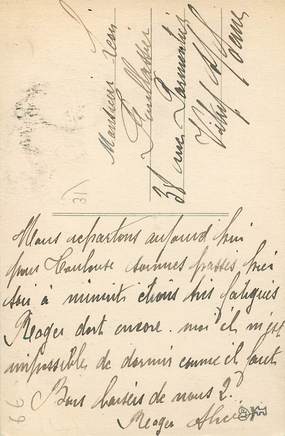 Monsieur Léon
38 rue Parmentier
Vitry s/ Seine
31
Nous repartons aujourd'hui
pour Toulouse sommes passés hier
soir à minuit étions très fatigués
Roger dort encore. moi il m'est
impossible de dormir comme il faut
Bons baisers de nous 2.
Roger Alice